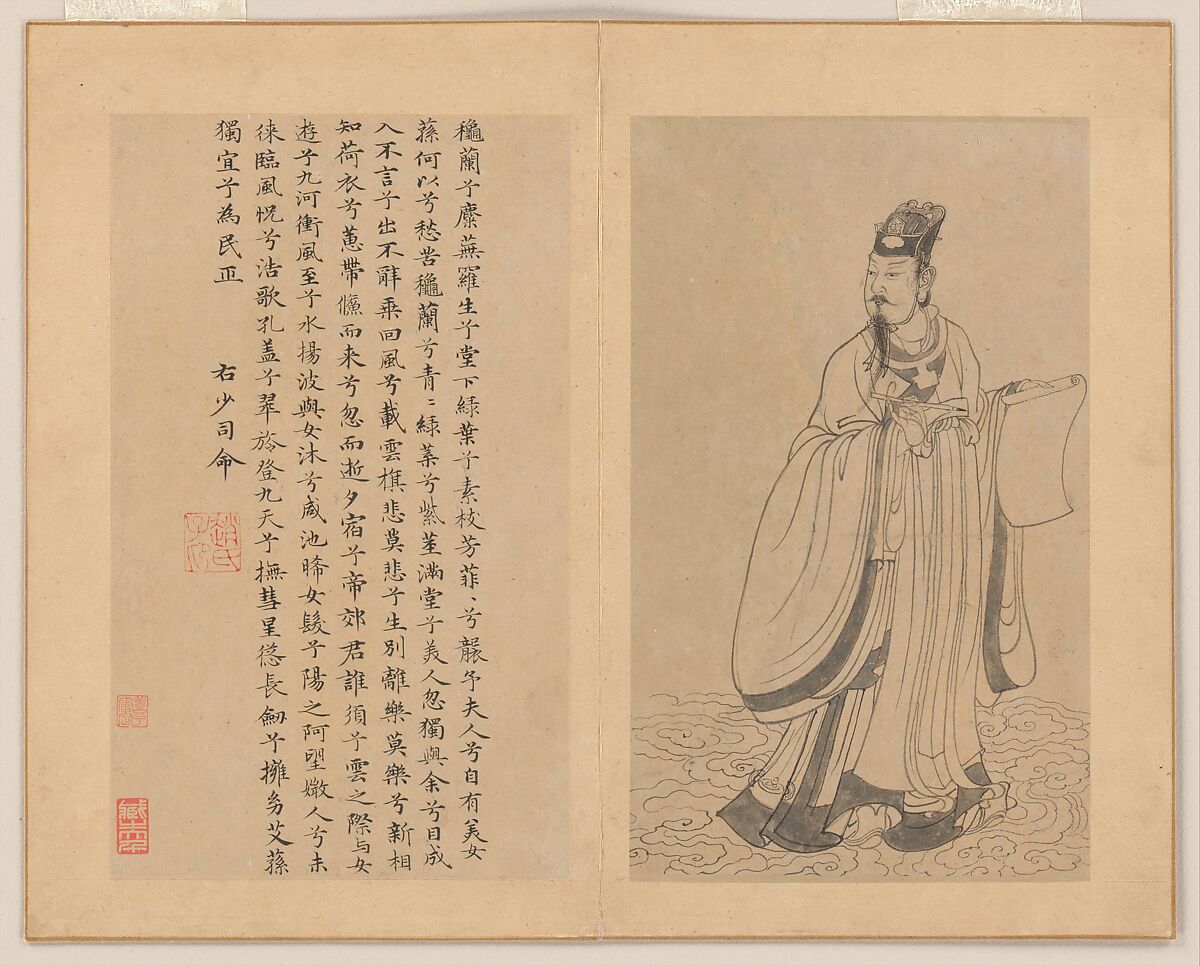 龝蘭兮麋蕪羅生兮堂下綠葉兮素枝芳菲〻兮襲予夫人兮自有美女
蓀何以兮愁苦龝蘭兮青〻綠葉兮紫莖滿堂兮美人忽獨與余兮目成
入不言兮出不辭乘回風兮載雲旗悲莫悲兮生別離樂莫樂兮新相
知荷衣兮蕙帶儵而来兮忽而逝夕宿兮帝郊君誰須兮雲之際与女
遊兮九河衝風至兮水揚波與女沐兮咸池晞女髮兮陽之阿望媺人兮未
徠臨風怳兮浩歌孔盖兮翠旍登九天兮撫彗星慫長劒兮擁幼艾蓀
獨宜兮為民正
右少司命
趙氏子昂